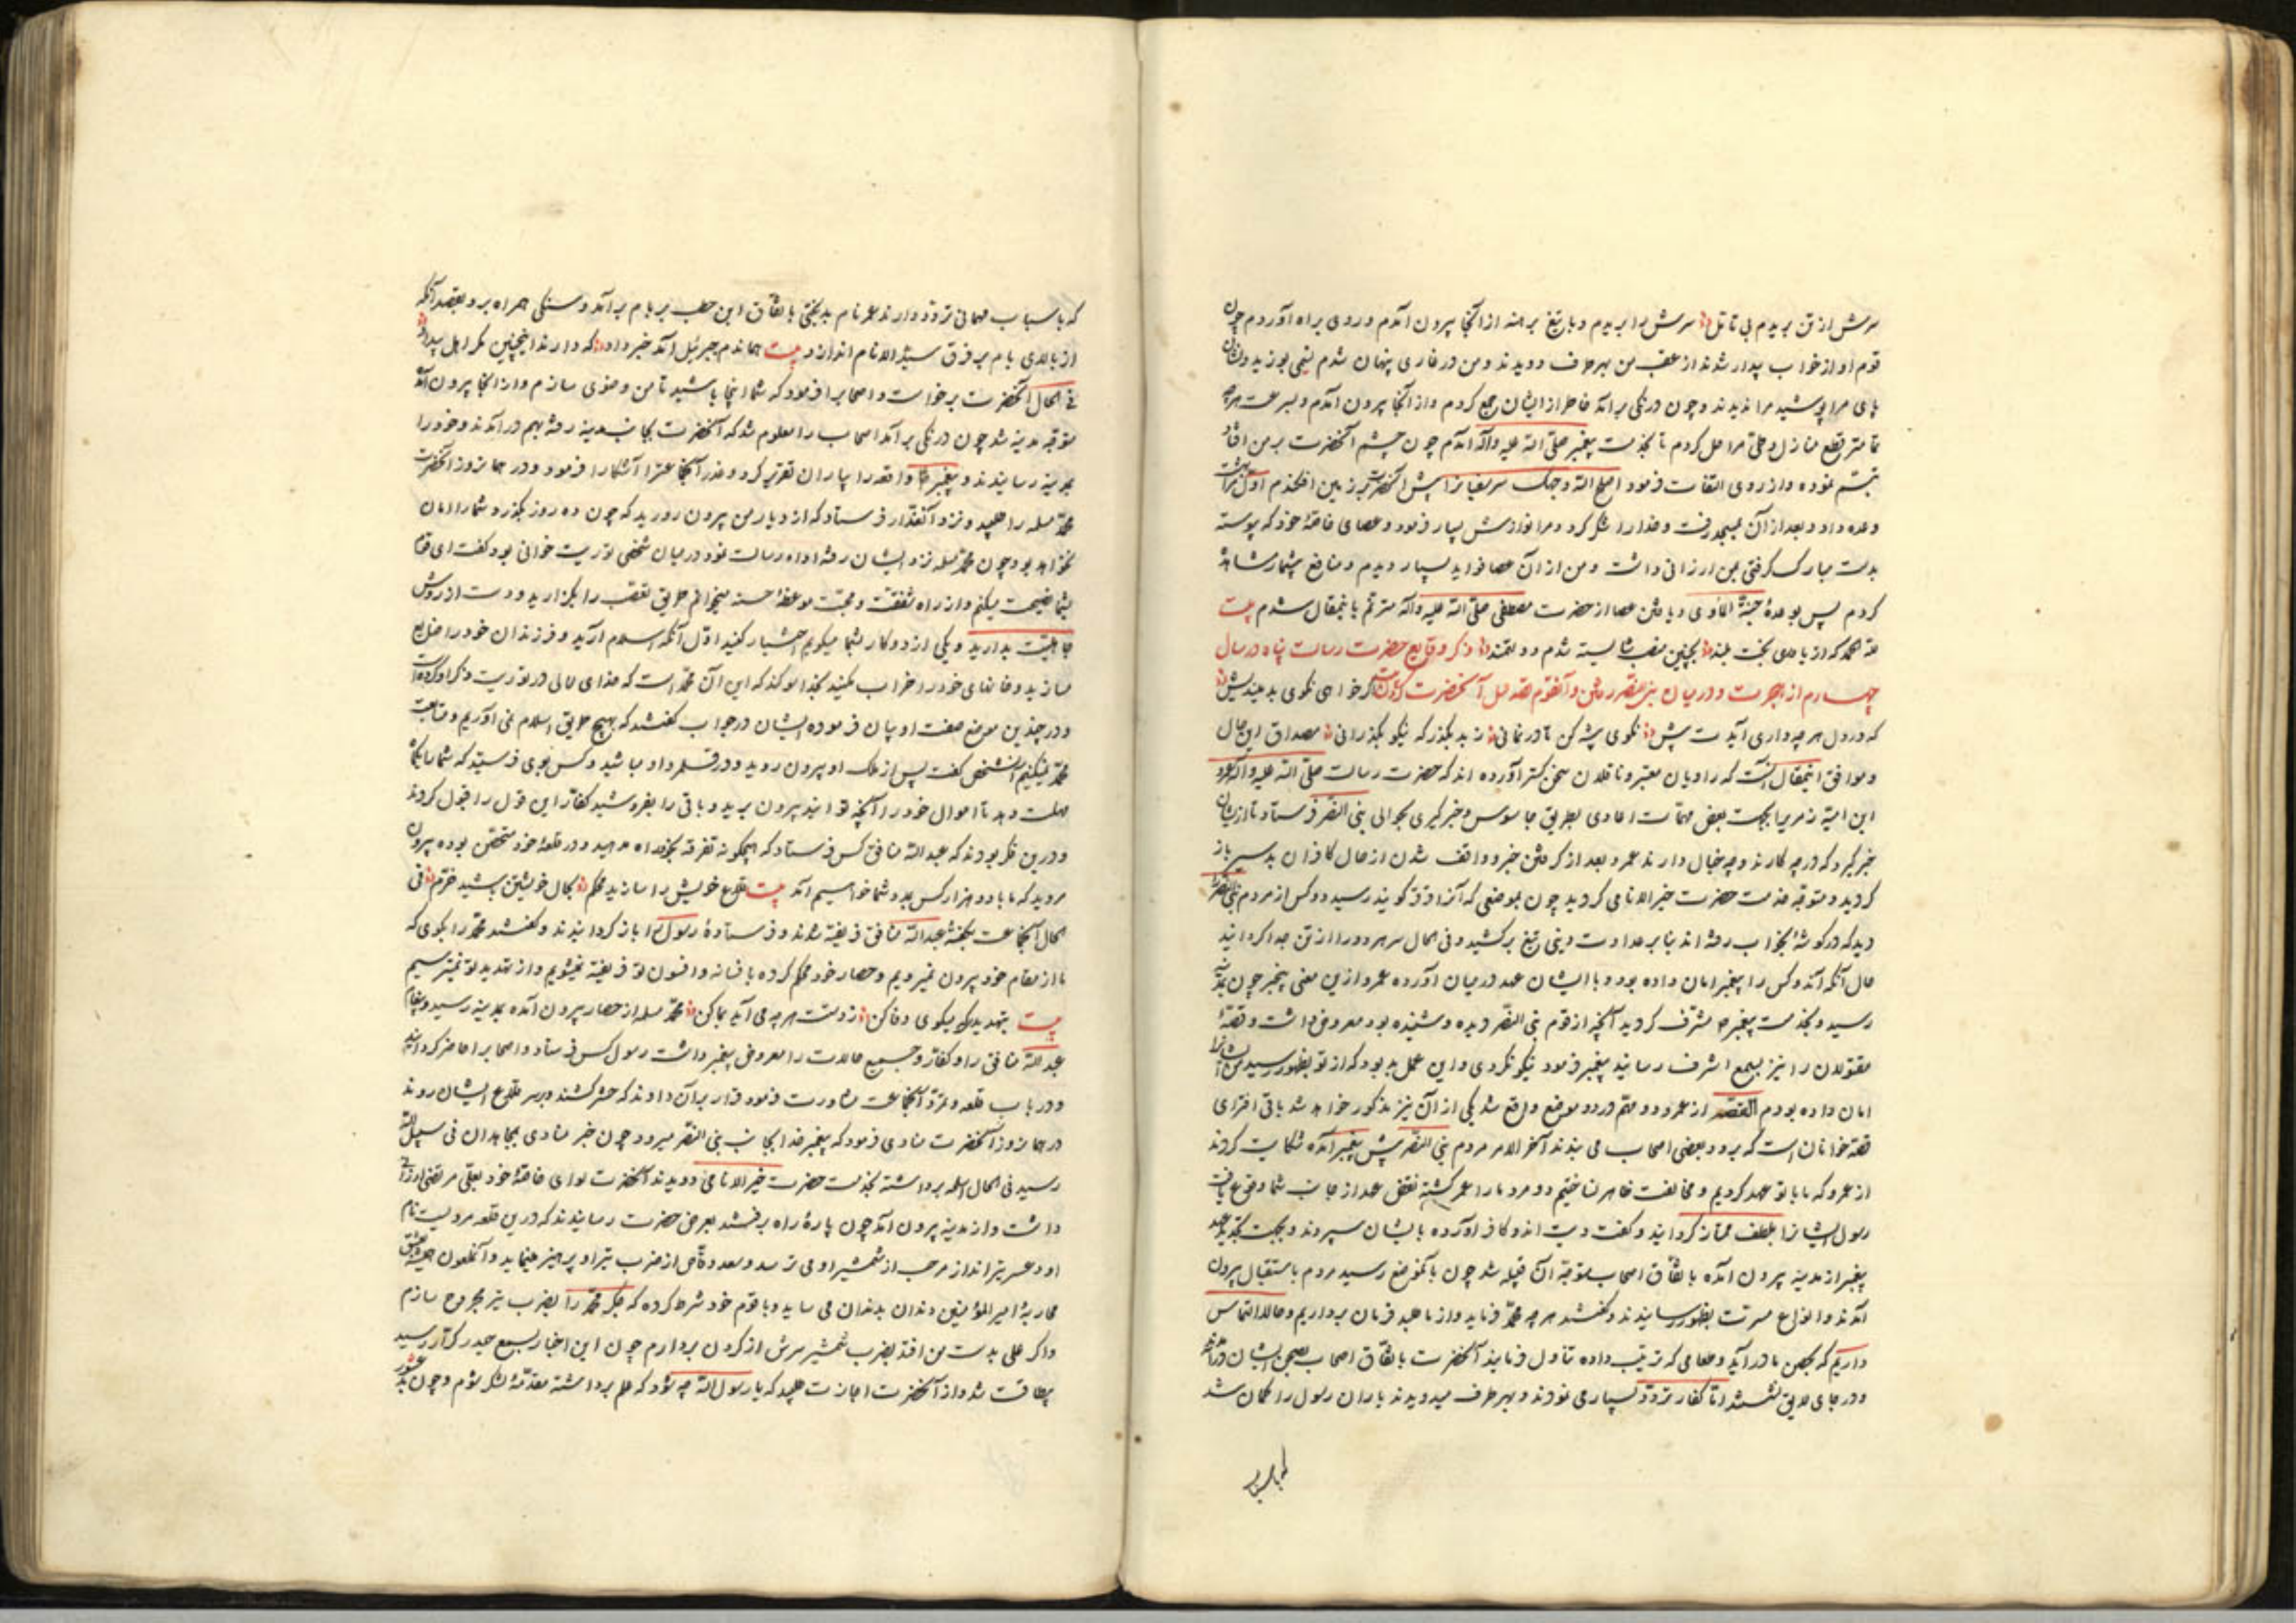 سرش از تن بریدم بی تامل سرش را بریدم و با تیغ برهنه از آنجا بیرون آمدم و روی براه آوردم چون
قوم او از خواب بیدار شدند از عقب من بهر طرف دویدند و من در غاری پنهان شدم
پای مرا پوشید مرا ندیدند و چون درنکی برآمد خاطر از ایشان جمع کردم و از آنجا بیرون آمدم و بسرعت هرچه
تمامتر قطع منازل و طی مراحل کردم تا بخدمت پیغمبر صلی الله علیه وآله آمدم چون چشم آنحضرت بر من افتاد
تبسم نموده و از روی التفات فرمود افلح الله وجهک سر سفیان را پیش آنحضرت بر زمین افکندم اول مرا بهشت
وعده داد و بعد از آن بمسجد رفت و خدا را شکر کرد و مرا نوازش بسیار فرمود و عصای خاصهٔ خود که پیوسته
بدست مبارک گرفتی بمن ارزانی داشت و من از آن عصا فواید بسیار دیدم و منافع بیشمار مشاهده
کردم پس بوعدهٔ جنة المأوی و یافتن عصا از حضرت مصطفی صلی الله علیه وآله مترنم باینمقال شدم بیت
لله الحمد که از یاری بخت بلند بچنین منصب شایسته شدم دولتمند ذکر وقایع حضرت رسالت پناه در سال
چهارم از هجرت و در میان بنی النضیر رفتن و آنقوم قصد قتل آنحضرت کردن بیت اگر خواهی نکوی بد میندیش
که در دل هرچه داری آیدت پیش نکوی پیشه کن تا در نمانی ز بد بگذر که نیکو بگذرانی مصداق این حال
و موافق اینمقال آنست که راویان معتبر و ناقلان سخن گستر آورده اند که حضرت رسالت صلی الله علیه وآله عمرو
ابن امیه ضمری را بجهت بعضی مهمات اعادی بطریق جاسوس و خبرگیری بحوالی بنی النضر فرستاد تا از ایشان
خبر گیرد که در چه کارند و چه خیال دارند عمرو بعد از گرفتن خبر و واقف شدن از حال کافران بمدینه باز
گردید و متوجه خدمت حضرت خیر الانام گردید چون بموضعی که آنرا قرقره گویند رسید دو کس از مردم بنی النضر را
دید که در گوشهٔ بخواب رفته اند بنا بر عداوت دینی تیغ برکشید و فی الحال سر هر دو را از تن جدا گردانید
حال آنکه آندو کس را پیغمبر امان داده بود و با ایشان عهد در میان آورده عمرو ازین معنی بیخبر چون بمدینه
رسید و بخدمت پیغمبر مشرف گردید آنچه از قوم بنی النضر دیده و شنیده بود معروض داشت و قصهٔ
مقتولان را نیز بسمع اشرف رسانید پیغمبر فرمود نیکو نکردی و این عمل بد بود که از تو بظهور رسید من ایشانرا
امان داده بودم القصه از عمرو دو مهم در دو موضع واقع شد یکی از آن نیز مذکور خواهد شد باقی افترای
قصه خوانان است که برو و بعضی اصحاب می بندند آخر الامر مردم بنی النضر پیش پیغمبر آمده شکایت کردند
از عمرو که ما با تو عهد کردیم و مخالفت ظاهر نساختیم دو مرد ما را عمر کشته نقض عهد از جانب شما وقوع یافت
رسول ایشانرا بلطف ممتاز گردانید و گفت دیت آندو کافر آورده بایشان سپردند و بجهت تجدید عهد
پیغمبر از مدینه بیرون آمده باتفاق اصحاب متوجه آن قبیله شد چون بآنموضع رسید مردم باستقبال بیرون
آمدند و انواع مسرت بظهور رسانیدند و گفتند هرچه محمد فرماید و از ما طلبد فرمان برداریم و حالا التماس
داریم که بحصن ما درآید و طعامی که ترتیب داده تناول فرمایند آنحضرت باتفاق اصحاب بصحن ایشان درآمد
و در جای لایق نشستند اما کفار تردد بسیار می نمودند و بهر طرف میدویدند یاران رسول را گمان شد
که باسباب
که باسباب مهمانی تردد دارند عمر نام بدبختی باتفاق ابن حطب بر بام برآمد و سنگی همراه برد بقصد آنکه
از بالای بام بر فرق سید الانام اندازد بیت هماندم جبرئیل آمد خبر داد که دارند اینچنین مکر اهل بیداد
فی الحال آنحضرت برخواست و اصحابرا فرمود که شما اینجا باشید تا من وضوی سازم و از آنجا بیرون آمد
متوجه مدینه شد چون درنکی برآمد اصحاب را معلوم شد که آنحضرت بجانب مدینه رفته بهم درآمدند و خود را
بمدینه رسانیدند و پیغمبر واقعه را بیاران تقریر کرد و غدر آنجماعت را آشکارا فرمود و در همانروز آنحضرت
محمد مسلمه را طلبید و نزد آنغدار فرستاد که از دیار من بیرون روید که چون ده روز بگذرد شما را امان
نخواهد بود چون محمد مسلمه نزد ایشان رفته اداء رسالت نمود در میان شخصی توریت خوانی بود گفت ای قوم
شما را نصیحت میکنم و از راه شفقت و محبت موعظهٔ حسنه میخوانم طریق تعصب را بگذارید و دست از روش
جاهلیت بدارید و یکی از دو کار بشما میکویم اختیار کنید اول آنکه اسلام آرید و فرزندان خود را ضایع
مسازید و خانهای خود را خراب مکنید بخدا سوگند که این آن محمد است که خدای تعالی در توریت ذکر او کرده است
و در چندین موضع صفت او بیان فرموده ایشان در جواب گفتند که بهیچ طریق اسلام نمی آوریم و متابعت
محمد نمیکنیم آنشخص گفت پس از ملک او بیرون روید و در قلمرو او مباشید و کس بوی فرستید که شما را یکماه
مهلت دهد تا اموال خود را آنچه توانید بیرون برید و باقی را بفروشید کفار این قول را قبول کردند
و درین فکر بودند که عبد الله منافق کس فرستاد که هیچگونه تفرقه بخود راه مدهید و در قلعهٔ خود متحصن بوده بیرون
مروید که ما با دو هزار کس بمدد شما خواهیم آمد بیت قلاع خویش را سازید محکم بحال خویشتن باشید خرم فی
الحال آنجماعت بگفتهٔ عبد الله منافق فریفته شدند و فرستادهٔ رسول را باز گردانیدند و گفتند محمد را بگوی که
ما از مقام خود بیرون نمیرویم و حصار خود محکم کرده بافسانه و افسون تو فریفته نمیشویم و از تهدید تو نمیترسیم
بیت بتهدید که میکوی وفا کن ز دستت هرچه می آید بما کن محمد مسلمه از حصار بیرون آمده بمدینه رسید و پیغام
عبد الله منافق را و کفار و جمیع حالات را معروض پیغمبر داشت رسول کس فرستاد و اصحابرا حاضر گردانید
و در باب قلعه و تمرد آنجماعت مشاورت فرمود قرار بر آن دادند که حشر کشند و بر سر قلاع ایشان روند
در همانروز آنحضرت منادی فرمود که پیغمبر خدا بجانب بنی النضر میرود چون خبر منادی بمجاهدان فی سبیل الله
رسید فی الحال اسلحه برداشته بخدمت حضرت خیر الانام دویدند آنحضرت لوای خاصهٔ خود بعلی مرتضی ارزانی
داشت و از مدینه بیرون آمد چون پارهٔ راه برفتند بعرض حضرت رسانیدند که درین قلعه مردیست نام
او دعسر تیرانداز مرحب از شمشیر او می ترسد و سعد وقاص از ضرب تیر او پرهیز مینماید و آنملعون همیشه بعشق
محاربهٔ امیر المؤمنین دندان بدندان می ساید و با قوم خود شرط کرده که جگر محمد را بضرب تیر مجروح سازم
و اگر علی بدست من افتد بضرب شمشیر سرش از گردن بردارم چون این اخبار بسمع حیدر کرار رسید
بیطاقت شد و از آنحضرت اجازت طلبید که یا رسول الله چه شود که علم برداشته مقدمهٔ لشکر شوم و چون